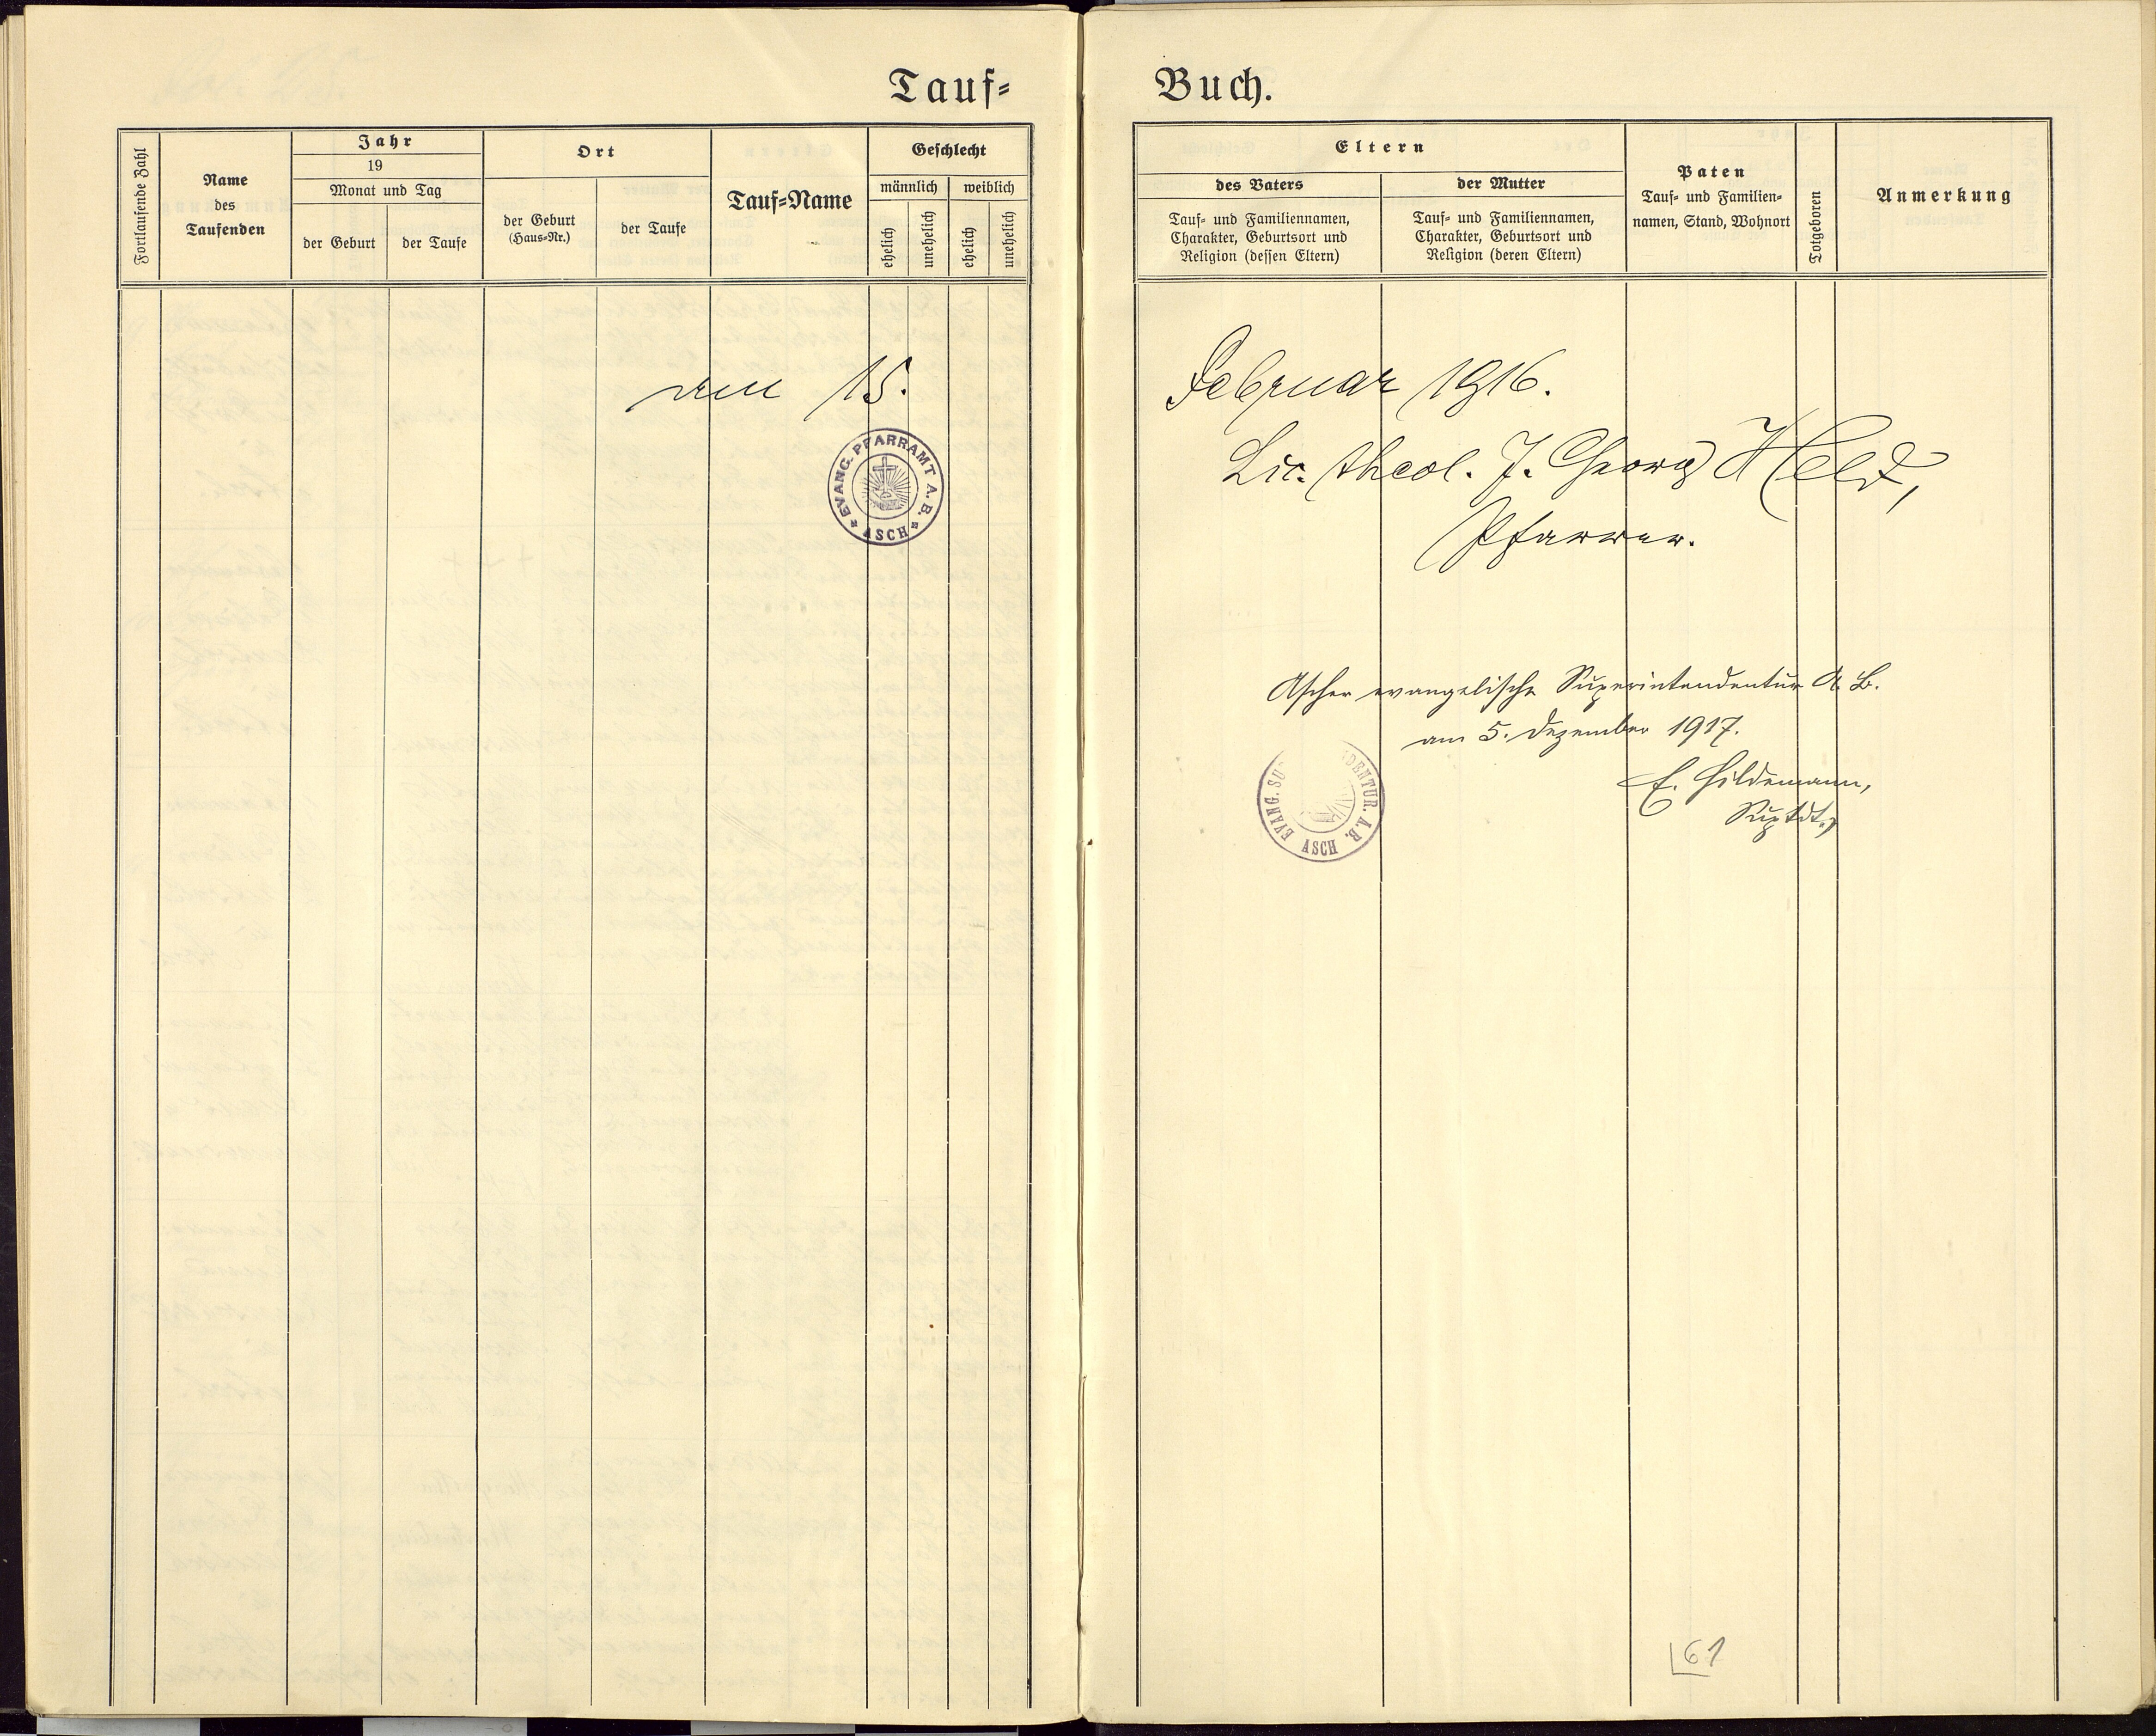 Tauf= Buch.
Fortlaufende Zahl
Name
des
Taufenden
Jahr
19
Monat und Tag
der Geburt
der Taufe
Ort
der Geburt
(Haus=Nr.)
der Taufe
Tauf=Name
Geschlecht
männlich
weiblich
ehelich
unehelich
ehelich
unehelich
Eltern
des Vaters
Tauf= und Familiennamen,
Charakter, Geburtsort und
Religion (dessen Eltern)
der Mutter
Tauf= und Familiennamen,
Charakter, Geburtsort und
Religion (deren Eltern)
Paten
Tauf= und Familien=
namen, Stand, Wohnort
Totgeboren
Anmerkung
am 15. Februar 1916.
EVANG. PFARRAMT A.B.
ASCH
Lic. theol. J. Georg Held,
Pfarrer.
Ascher evangelische Superintendentur A. B.
am 5. Dezember 1917.
EVANG. SU DENTUR. A.B.
ASCH
E. Hildemann,
Suptdt.
61